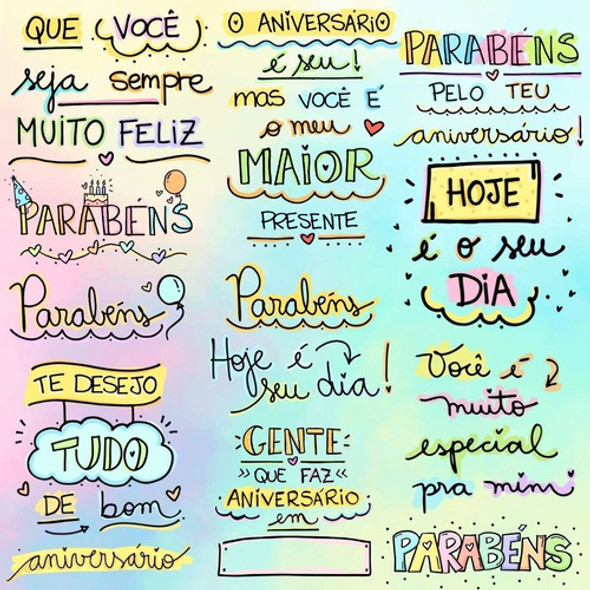 QUE VOCÊ
seja sempre
MUITO FELIZ
PARABÉNS
Parabéns
TE DESEJO
TUDO
DE bom
aniversário
O ANIVERSÁRIO
é seu!
mas VOCÊ É
o meu
MAIOR
PRESENTE
Parabéns
Hoje é
seu dia!
GENTE
QUE FAZ
ANIVERSÁRIO
em
PARABÉNS
PELO TEU
aniversário!
HOJE
é o seu
DIA
Você é
muito
especial
pra mim
PARABÉNS